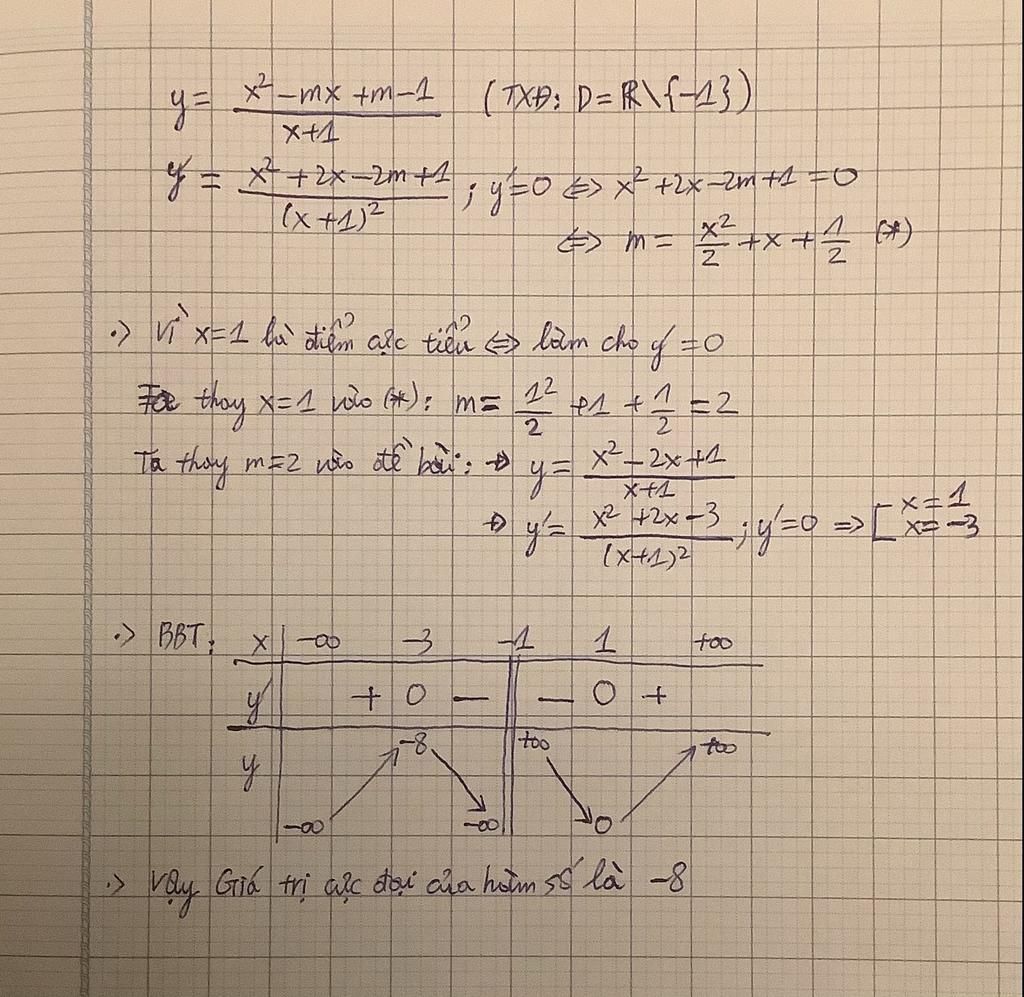 y = (x² - mx + m - 1)/(x+1) (TXĐ: D = ℝ \ {-1})
y' = (x² + 2x - 2m + 1)/(x+1)² ; y' = 0 ⇔ x² + 2x - 2m + 1 = 0
⇔ m = x²/2 + x + 1/2 (*)
•> Vì x=1 là điểm cực tiểu ⇔ làm cho y' = 0
Ta thay x=1 vào (*): m = 1²/2 + 1 + 1/2 = 2
Ta thay m=2 vào đề bài: → y = (x² - 2x + 1)/(x+1)
→ y' = (x² + 2x - 3)/(x+1)² ; y' = 0 ⇒ [ x = 1
x = -3
•> BBT: x -∞ -3 -1 1 +∞
y' + 0 - - 0 +
-8 +∞ +∞
y
-∞ -∞ 0
•> Vậy Giá trị cực đại của hàm số là -8